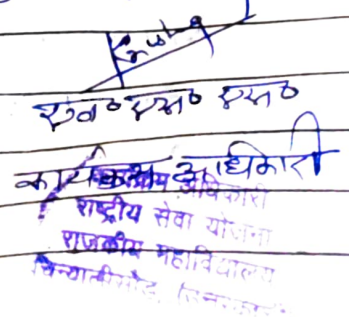 एन० एस० एस०
कार्यक्रम अधिकारी
कार्यक्रम अधिकारी
राष्ट्रीय सेवा योजना
राजकीय महाविद्यालय
चिन्यालीसौड़